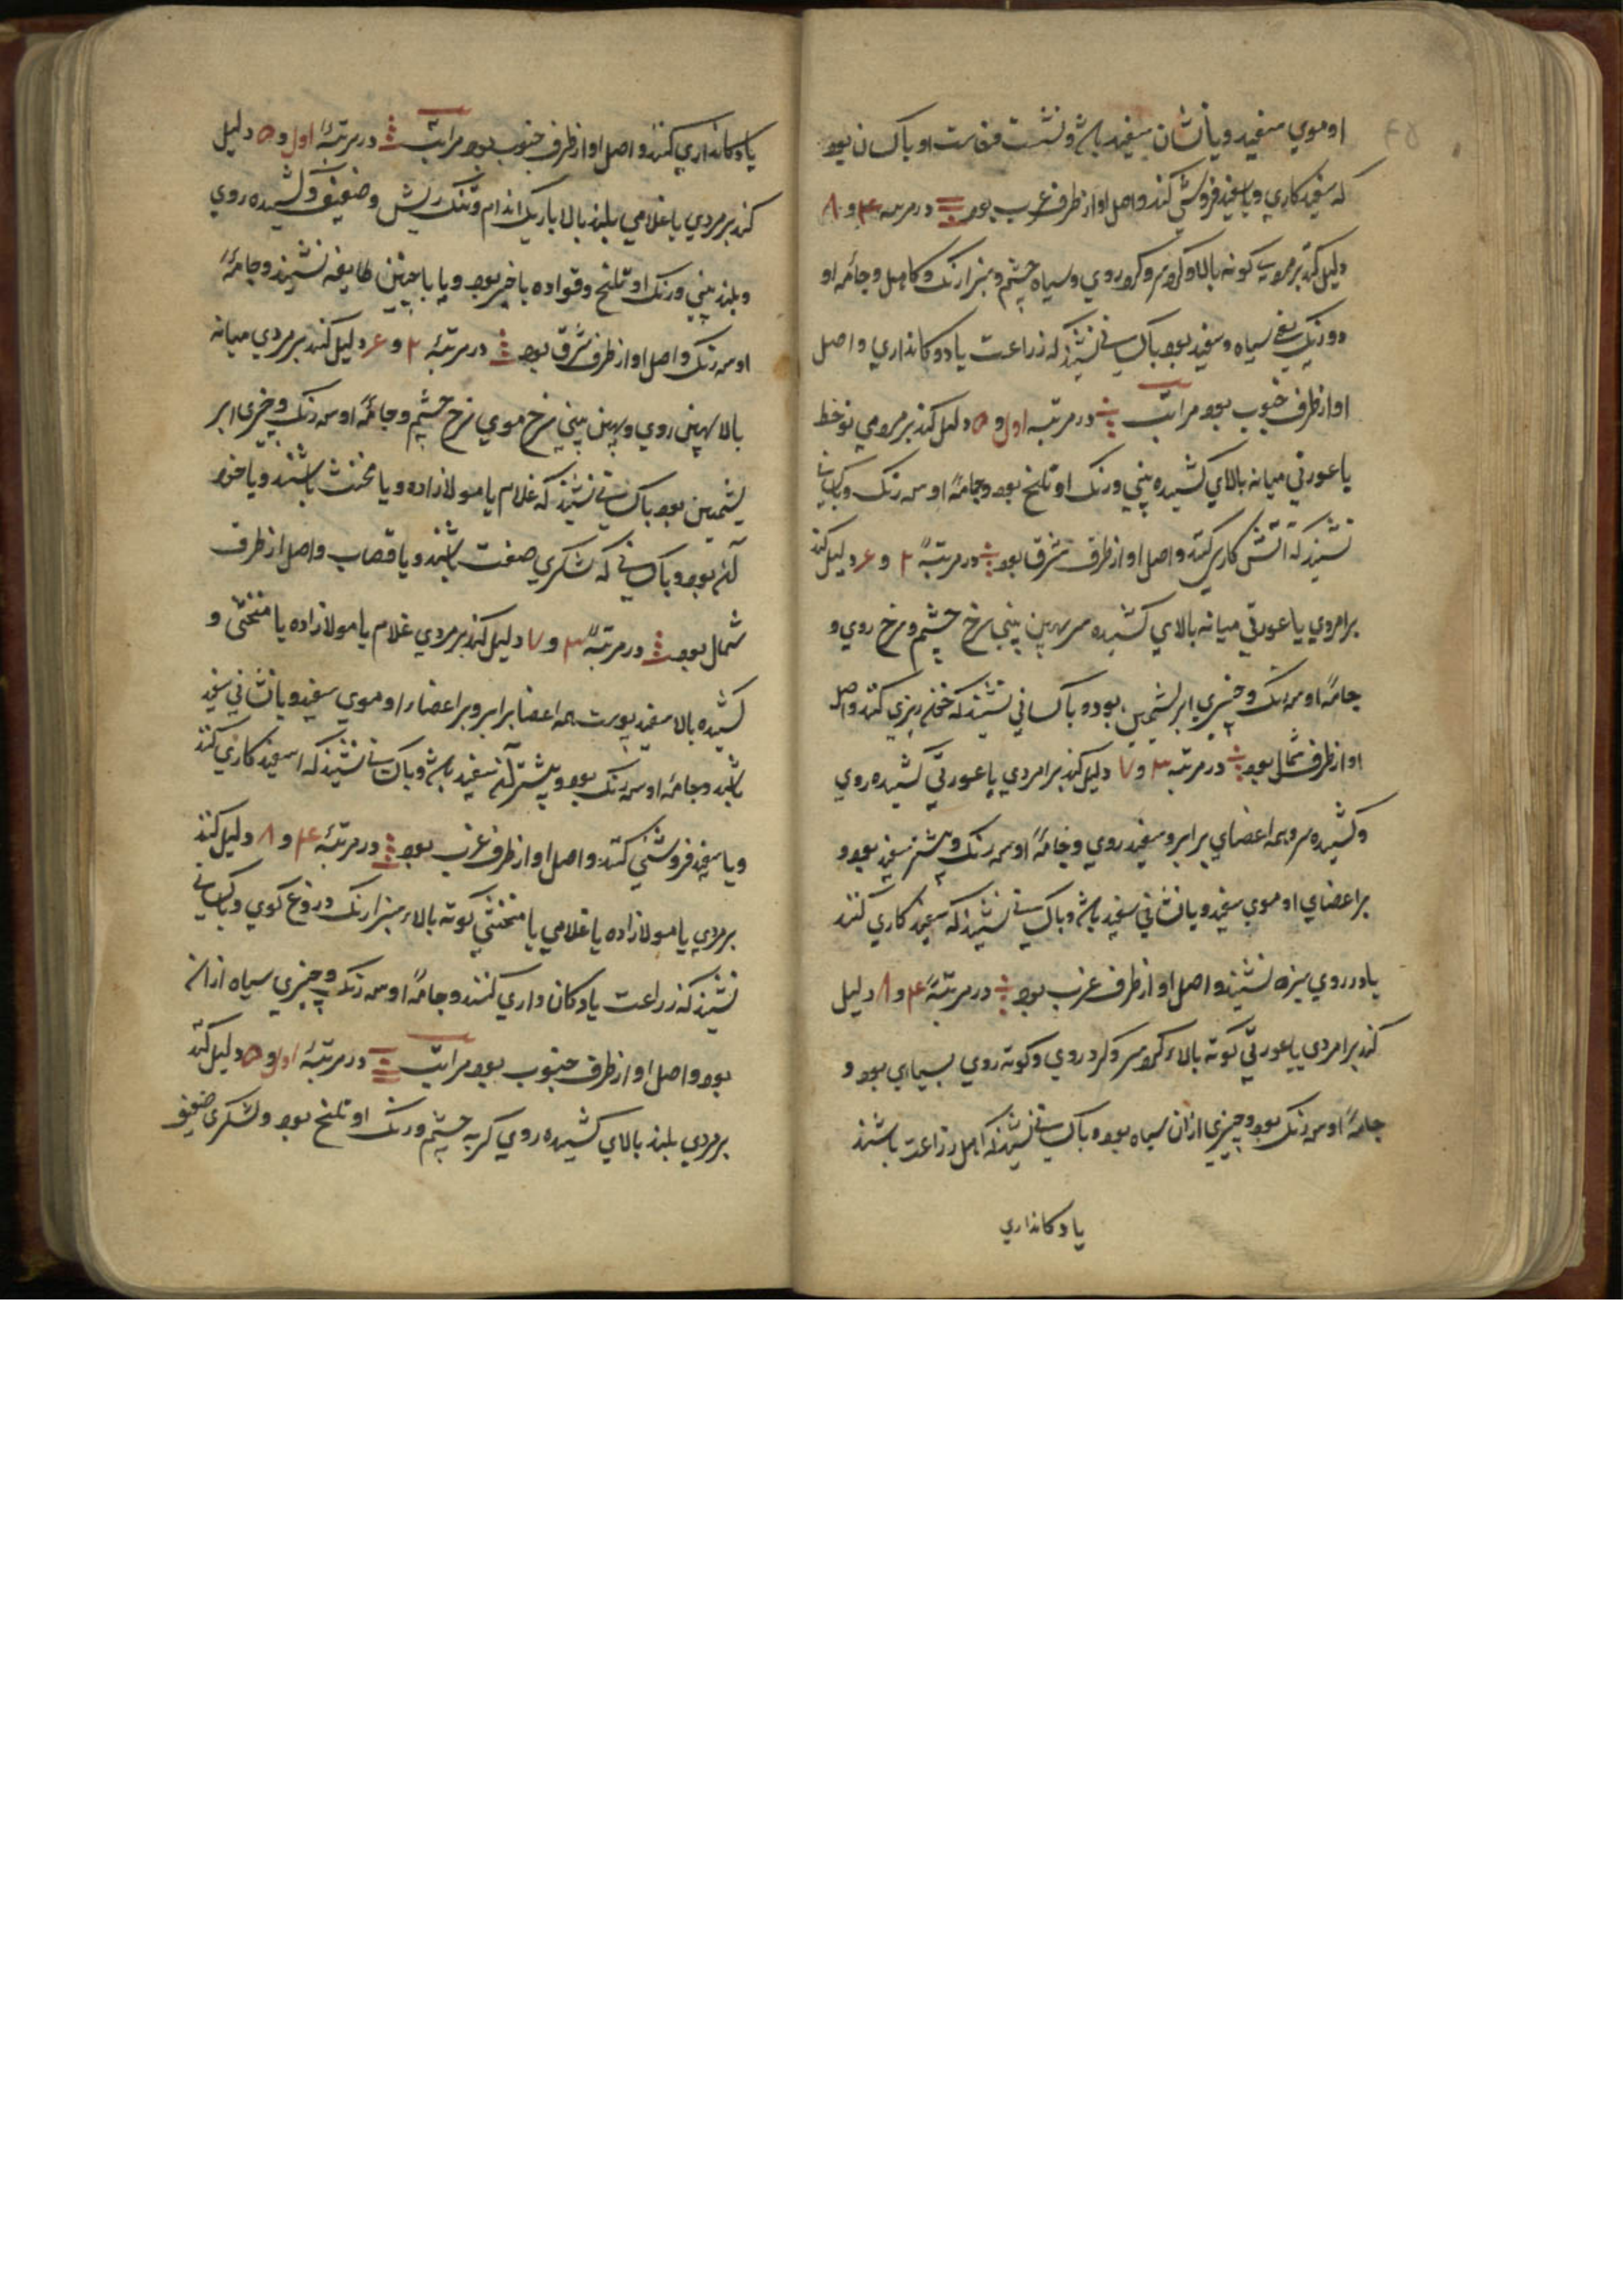 او موي سفید و یا نشان سفید باشد و نشست و خاست او با کسان بود
که سفید کاري و یا سفید فروشي کنند و اصل او از طرف غرب بود در مرتبه ۴ و ۸
دلیل کند بر مردي کوته بالا و کرد سر و کرد روي و سیاه چشم و سبزارنک و کاهل و جامه او
دو رنک یعني سیاه و سفید بود با کساني نشیند که زراعت یا دوکانداري و اصل
او از طرف جنوب بود مراتب در مرتبه اول و ۵ دلیل کند بر مردمي نوخط
یا عورتي میانه بالاي کشیده بیني و رنک او تلخ بود و جامهٔ او سه رنک و با کساني
نشیند که آتش کاري کنند و اصل او از طرف شرق بود در مرتبهٔ ۲ و ۶ دلیل کند
بر امردي یا عورتي میانه بالاي کشیده سر پهین بیني سرخ چشم و سرخ روي و
جامهٔ او سه رنک و چیزي ابریشمین بود و با کساني نشیند که خون ریزي کنند و اصل
او از طرف شمال بود در مرتبه ۳ و ۷ دلیل کند بر امردي یا عورتي کشیده روي
و کشیده سر و همه اعضاي برابر و سفید روي و جامهٔ او سه رنک و بیشتر سفید بود و
بر اعضاي او موي سفید و یا نشاني سفید باشد و با کساني نشیند که سفید کاري کنند
یا در روي سبزه نشیند و اصل او از طرف غرب بود در مرتبهٔ ۴ و ۸ دلیل
کند بر امردي یا عورتي کوته بالاء کرد سر و کرد روي و کوته روي بسیاري بود و
جامهٔ او سه رنک بود و چیزي ازان سیاه بود و با کساني نشیند که اهل زراعت باشند
یا دکانداري
یا دکانداري کنند و اصل او از طرف جنوب بود مراتب در مرتبهٔ اول و ۵ دلیل
کند بر مردي یا غلامي بلند بالا باریک اندام و تنک ریش و ضعیف و کشیده روي
و بلند بیني و رنک او تلخ و قواده یا خبر بود و یا با چنین طایفه نشیند و جامهٔ
او سه رنک و اصل او از طرف شرق بود در مرتبهٔ ۲ و ۶ دلیل کند بر مردي میانه
بالا پهین روي و پهین بیني سرخ موي سرخ چشم و جامهٔ او سه رنک و چیزي ابر
یشمین بود با کساني نشیند که غلام یا مولازاده و یا مخنث باشند و یا خود
آن بود و با کساني که لشکري صفت باشند و یا قصاب و اصل از طرف
شمال بود در مرتبهٔ ۳ و ۷ دلیل کند بر مردي غلام یا مولازاده یا مخنثي و
کشیده بالا سفید پوست همه اعضا برابر و بر اعضاء او موي سفید و یا نشاني سفید
باشد و جامه او سه رنک بود و بیشتر آن سفید باشد و با کساني نشیند که سفید کاري کنند
و یا سفید فروشي کنند و اصل او از طرف غرب بود در مرتبهٔ ۴ و ۸ دلیل کند
بر مردي یا مولازاده یا غلامي یا مخنثي کوته بالاء سبزارنک دروغ کوي و با کساني
نشیند که زراعت یا دکان داري کنند و جامهٔ او سه رنک و چیزي سیاه ازان
بود و اصل او از طرف جنوب بود مراتب در مرتبهٔ اول و ۵ دلیل کند
بر مردي بلند بالاي کشیده روي کربه چشم و رنک او تلخ بود و لشکري ضعیف